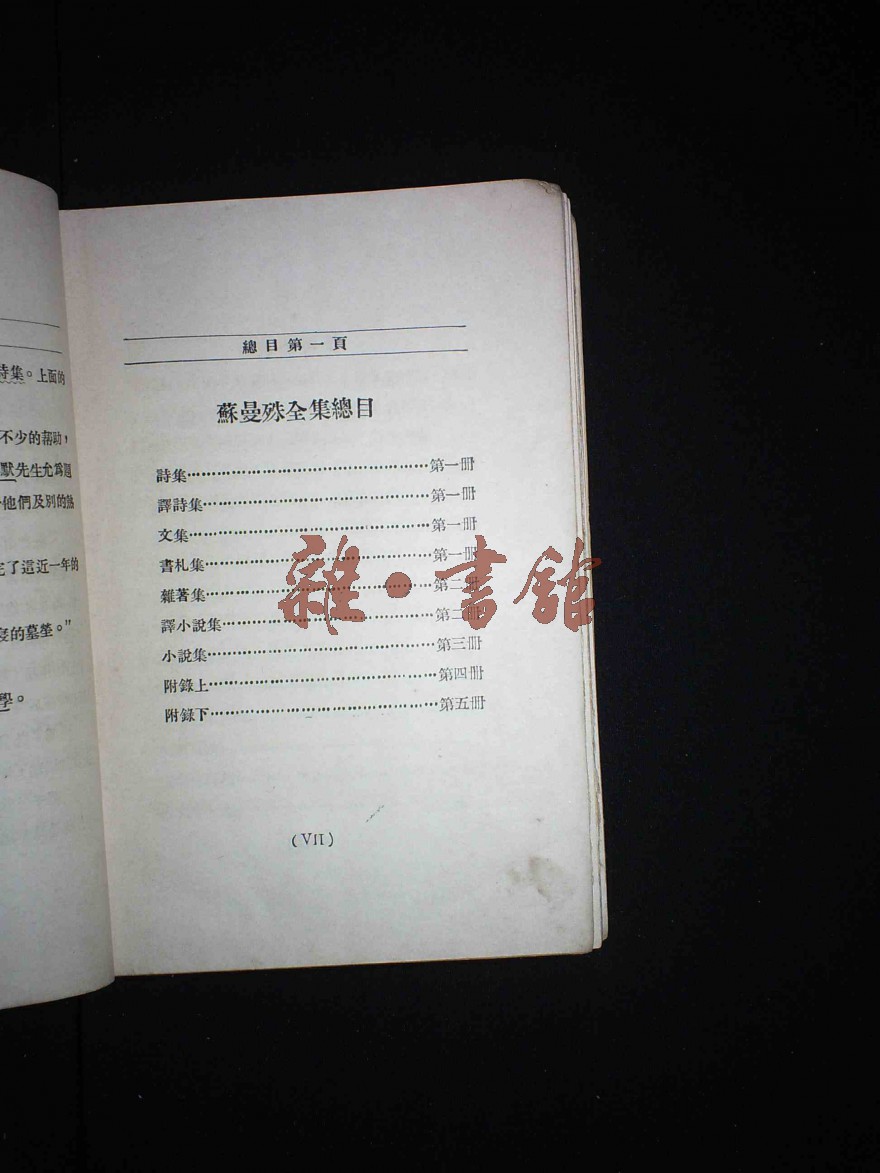 詩集。上面的
不少的幇助，
默先生允爲題
他們及別的熱
完了這近一年的
的墓塋。”
學。
總目第一頁
蘇曼殊全集總目
詩集……………………………………第一册
譯詩集…………………………………第一册
文集……………………………………第一册
書札集…………………………………第一册
雜著集…………………………………第二册
譯小說集………………………………第二册
小說集…………………………………第三册
附錄上…………………………………第四册
附錄下…………………………………第五册
(VII)
雜·書館